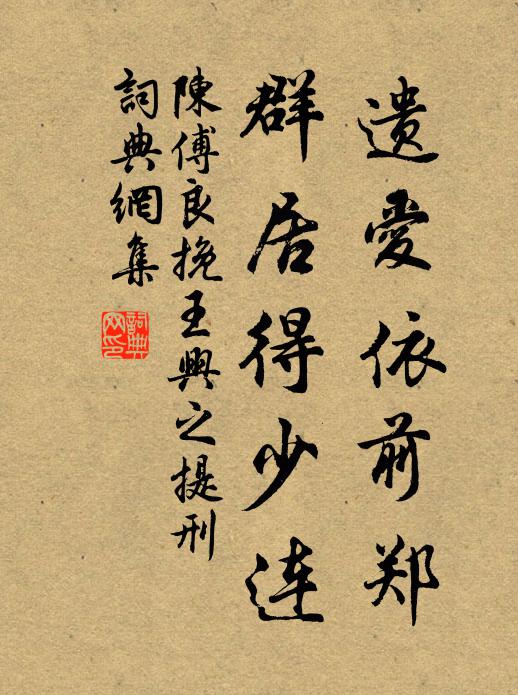 遗爱依前郑
群居得少连
陳傅良挽王興之提刑
詞典網集
詞典网印